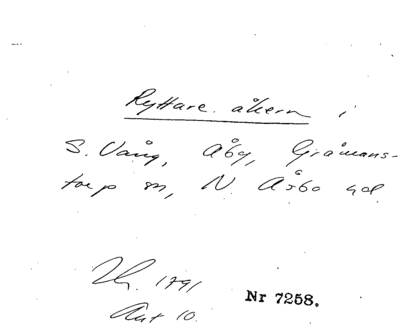 Ryttare åkern i
S. Vång, Åby, Gråmans-
torp sn, N. Åsbo hd.
1791
Akt 10.
Nr 7258.